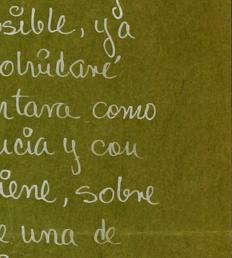 sible, ya
olvidaré
ntara como
ucia y con
iene, sobre
e una de